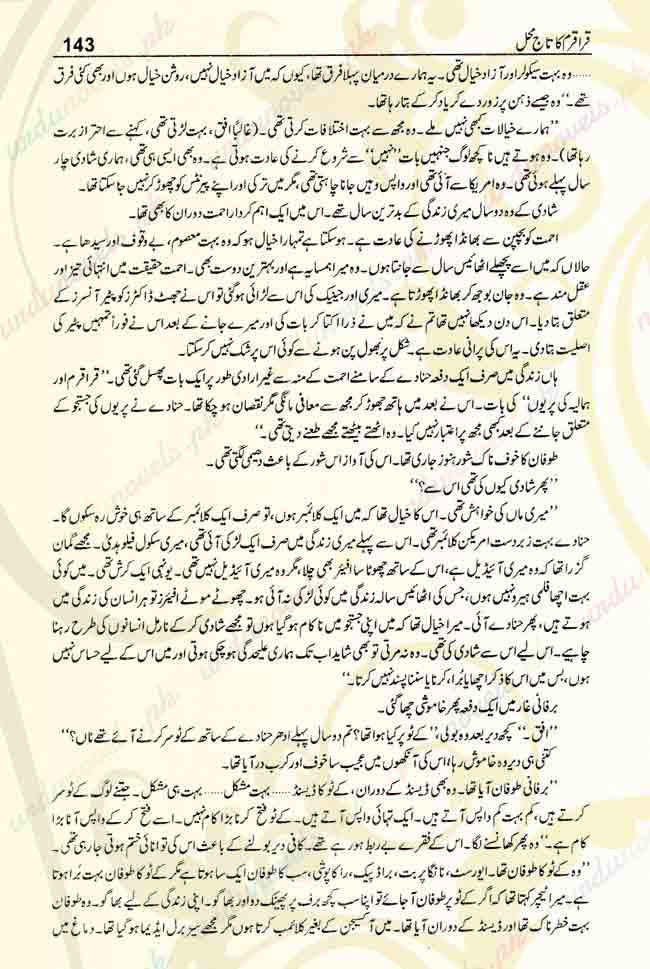 143
قراقرم کا تاج محل
……وہ بہت سیکولر اور آزاد خیال تھی۔ یہ ہمارے درمیان پہلا فرق تھا، کیوں کہ میں آزاد خیال نہیں، روشن خیال ہوں اور بھی کئی فرق
تھے۔“ وہ جیسے ذہن پر زور دے کر یاد کر کے بتا رہا تھا۔
”ہمارے خیالات کبھی نہیں ملے۔ وہ مجھ سے بہت اختلافات کرتی تھی۔ (غالباً افق، بہت لڑتی تھی، کہنے سے احتراز برت
رہا تھا)۔ وہ ہوتے ہیں نا کچھ لوگ جنہیں بات ”نہیں“ سے شروع کرنے کی عادت ہوتی ہے۔ وہ بھی ایسی ہی تھی، ہماری شادی چار
سال پہلے ہوئی تھی۔ وہ امریکا سے آئی تھی اور واپس وہیں جانا چاہتی تھی، مگر میں ترکی اور اپنے پیرنٹس کو چھوڑ کر نہیں جا سکتا تھا۔
شادی کے وہ دو سال میری زندگی کے بدترین سال تھے۔ اس میں ایک اہم کردار احمت دوران کا بھی تھا۔
احمت کو بچپن سے بھانڈا پھوڑنے کی عادت ہے۔ ہو سکتا ہے تمہارا خیال ہو کہ وہ بہت معصوم، بے وقوف اور سیدھا ہے۔
حالاں کہ میں اسے پچھلے اٹھائیس سال سے جانتا ہوں۔ وہ میرا ہمسایہ ہے اور بہترین دوست بھی۔ احمت حقیقت میں انتہائی تیز اور
عقل مند ہے۔ وہ جان بوجھ کر بھانڈا پھوڑتا ہے۔ میری اور جینیک کی اس سے لڑائی ہو گئی تو اس نے جھٹ ڈاکٹرز کو پیٹر آنسرز کے
متعلق بتا دیا۔ اس دن دیکھا نہیں تھا تم نے کہ میں نے ذرا اکتا کر بات کی اور میرے جانے کے بعد اس نے فوراً تمہیں پیٹر کی
اصلیت بتا دی۔ یہ اس کی پرانی عادت ہے۔ شکل پر بھول پن ہونے سے کوئی اس پر شک نہیں کر سکتا۔
ہاں زندگی میں صرف ایک دفعہ حنادے کے سامنے احمت کے منہ سے غیر ارادی طور پر ایک بات پھسل گئی تھی۔ ”قراقرم اور
ہمالیہ کی پریوں“ کی بات۔ اس نے بعد میں ہاتھ جوڑ کر مجھ سے معافی مانگی مگر نقصان ہو چکا تھا۔ حنادے نے پریوں کی جستجو کے
متعلق جاننے کے بعد کبھی مجھ پر اعتبار نہیں کیا۔ وہ اٹھتے بیٹھتے مجھے طعنے دیتی تھی۔“
طوفان کا خوف ناک شور ہنوز جاری تھا۔ اس کی آواز اس شور کے باعث دھیمی لگتی تھی۔
”پھر شادی کیوں کی تھی اس سے؟“
”میری ماں کی خواہش تھی۔ اس کا خیال تھا کہ میں ایک کلائمبر ہوں، تو صرف ایک کلائمبر کے ساتھ ہی خوش رہ سکوں گا۔
حنادے بہت زبردست امریکن کلائمبر تھی۔ اس سے پہلے میری زندگی میں صرف ایک لڑکی آئی تھی، میری سکول فیلو ہدیٰ۔ مجھے گمان
گزرا تھا کہ وہ میری آئیڈیل ہے، اس کے ساتھ چھوٹا سا افیئر بھی چلا، مگر وہ میری آئیڈیل نہیں تھی۔ یونہی ایک کرش تھی۔ میں کوئی
بہت اچھا فلمی ہیرو نہیں ہوں، جس کی اٹھائیس سالہ زندگی میں کوئی لڑکی نہ آئی ہو۔ چھوٹے موٹے افیئرز تو ہر انسان کی زندگی میں
ہوتے ہیں، پھر حنادے آئی۔ میرا خیال تھا کہ میں اپنی جستجو میں ناکام ہو گیا ہوں تو مجھے شادی کر کے نارمل انسانوں کی طرح رہنا
چاہیے۔ اس لیے اس سے شادی کی تھی۔ وہ نہ مرتی تو بھی شاید اب تک ہماری علیحدگی ہو چکی ہوتی اور میں اس کے لیے حساس نہیں
ہوں، بس میں اس کا ذکر اچھا یا برا، کرنا یا سننا پسند نہیں کرتا۔“
برفانی غار میں ایک دفعہ پھر خاموشی چھا گئی۔
”افق۔“ کچھ دیر بعد وہ بولی، ”کے ٹو پر کیا ہوا تھا؟ تم دو سال پہلے ادھر حنادے کے ساتھ کے ٹو سر کرنے آئے تھے ناں؟“
کتنی ہی دیر وہ خاموش رہا، اس کی آنکھوں میں عجیب سا خوف اور کرب در آیا تھا۔
”برفانی طوفان آیا تھا۔ وہ بھی ڈیسنڈ کے دوران، کے ٹو کا ڈیسنڈ…… بہت مشکل…… بہت ہی مشکل۔ جتنے لوگ کے ٹو سر
کرتے ہیں، کم بہت کم واپس آتے ہیں۔ ایک تہائی واپس آتے ہیں۔ کے ٹو فتح کرنا بڑا کام نہیں۔ اسے فتح کر کے واپس آنا بڑا
کام ہے۔“ وہ پھر کھانسنے لگا۔ اس کے فقرے بے ربط ہو رہے تھے۔ کافی دیر بولنے کے باعث اس کی توانائی ختم ہوتی جا رہی تھی۔
”وہ کے ٹو کا طوفان تھا۔ ایورسٹ، نانگا پربت، براڈ پیک، راکاپوشی، سب کا طوفان ایک سا ہوتا ہے مگر کے ٹو کا طوفان بہت برا ہوتا
ہے۔ میرا ٹیچر کہتا تھا کہ اگر کے ٹو پر طوفان آ جائے تو اپنا سب کچھ برف پر پھینک دو اور بھاگو۔ اپنی زندگی کے لیے بھاگو۔ وہ طوفان
بہت خطرناک تھا اور ڈیسنڈ کے دوران آیا تھا۔ میں آکسیجن کے بغیر کلائمب کرتا ہوں مگر مجھے سیریبرل ایڈیما ہو گیا تھا۔ دماغ میں